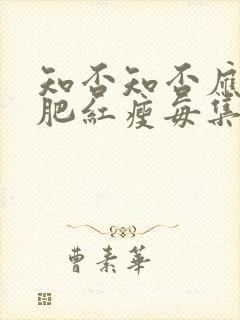 知否知否應
肥紅瘦每集
曹素華